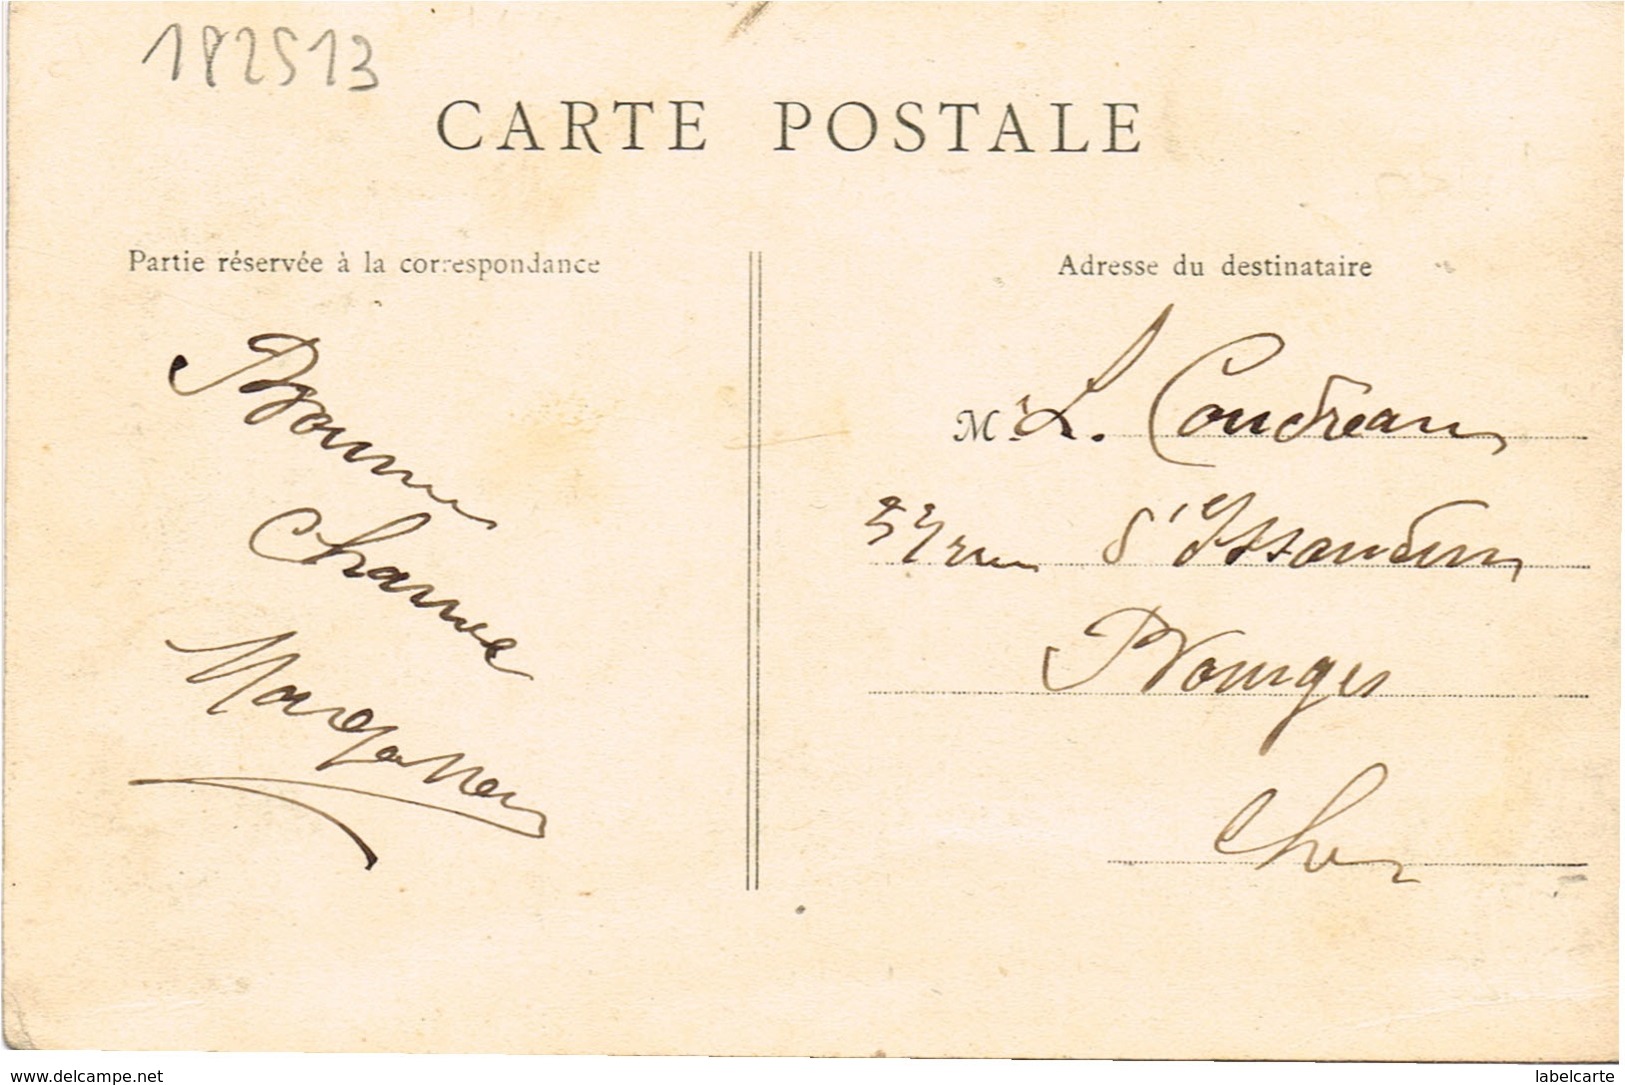 182513
CARTE POSTALE
Partie réservée à la correspondance
Adresse du destinataire
Bonne
Chance
M. L. Coudreau
57 rue d'Issoudun
Bourges
Cher
www.delcampe.net
labelcarte